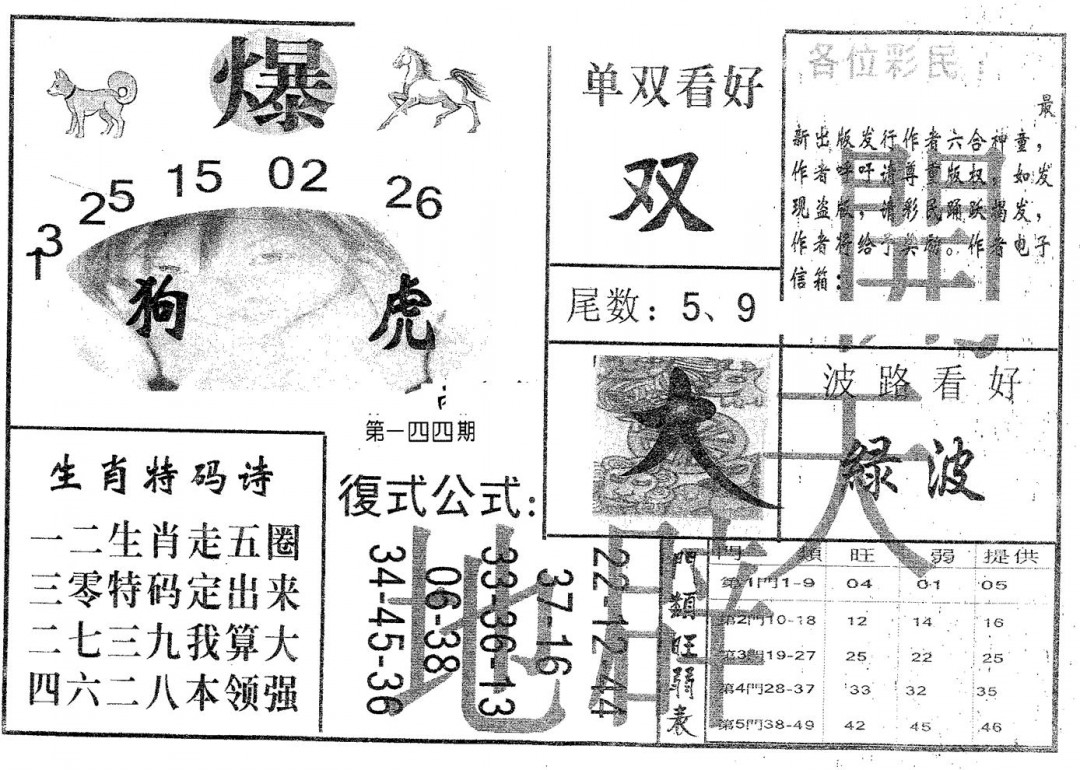 爆
13
25
15
02
26
狗
虎
第一四四期
生肖特码诗
一二生肖走五圈
三零特码定出来
二七三九我算大
四六二八本领强
復式公式：
34-45-36
06-38
33-36-13
37-16
22-12-44
单双看好
双
尾数：5、9
大
各位彩民：
最
新出版发行作者六合神童，
作者呼吁请尊重版权，如发
现盗版，请彩民踊跃揭发，
作者将给予奖励。作者电子
信箱：
波路看好
綠波
開
天
地
旺
門類旺弱表
門類 旺 弱 提供
第1門1-9 04 01 05
第2門10-18 12 14 16
第3門19-27 25 22 25
第4門28-37 33 32 35
第5門38-49 42 45 46